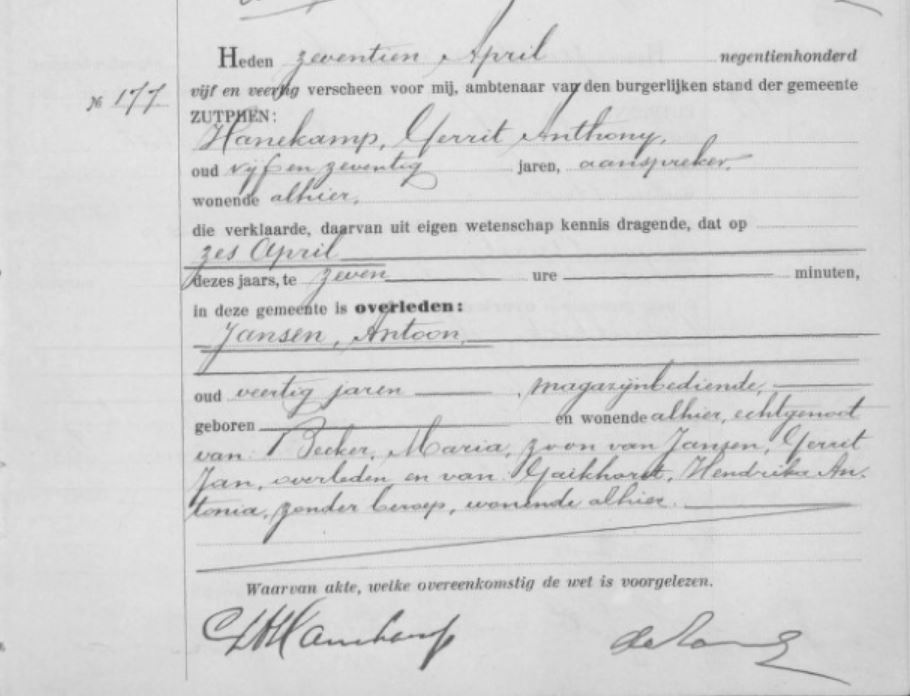 Heden zeventien April negentienhonderd
№ 177 vijf en veertig verscheen voor mij, ambtenaar van den burgerlijken stand der gemeente
ZUTPHEN:
Hanekamp, Gerrit Anthony,
oud vijf en zeventig jaren, aanspreker,
wonende alhier,
die verklaarde, daarvan uit eigen wetenschap kennis dragende, dat op
zes April
dezes jaars, te zeven ure minuten,
in deze gemeente is overleden:
Jansen, Antoon,
oud veertig jaren, magazijnbediende,
geboren en wonende alhier, echtgenoot
van Becker, Maria, zoon van Jansen, Gerrit
Jan, overleden en van Gaikhorst, Hendrika An-
tonia, zonder beroep, wonende alhier.
Waarvan akte, welke overeenkomstig de wet is voorgelezen.
GAHanekamp